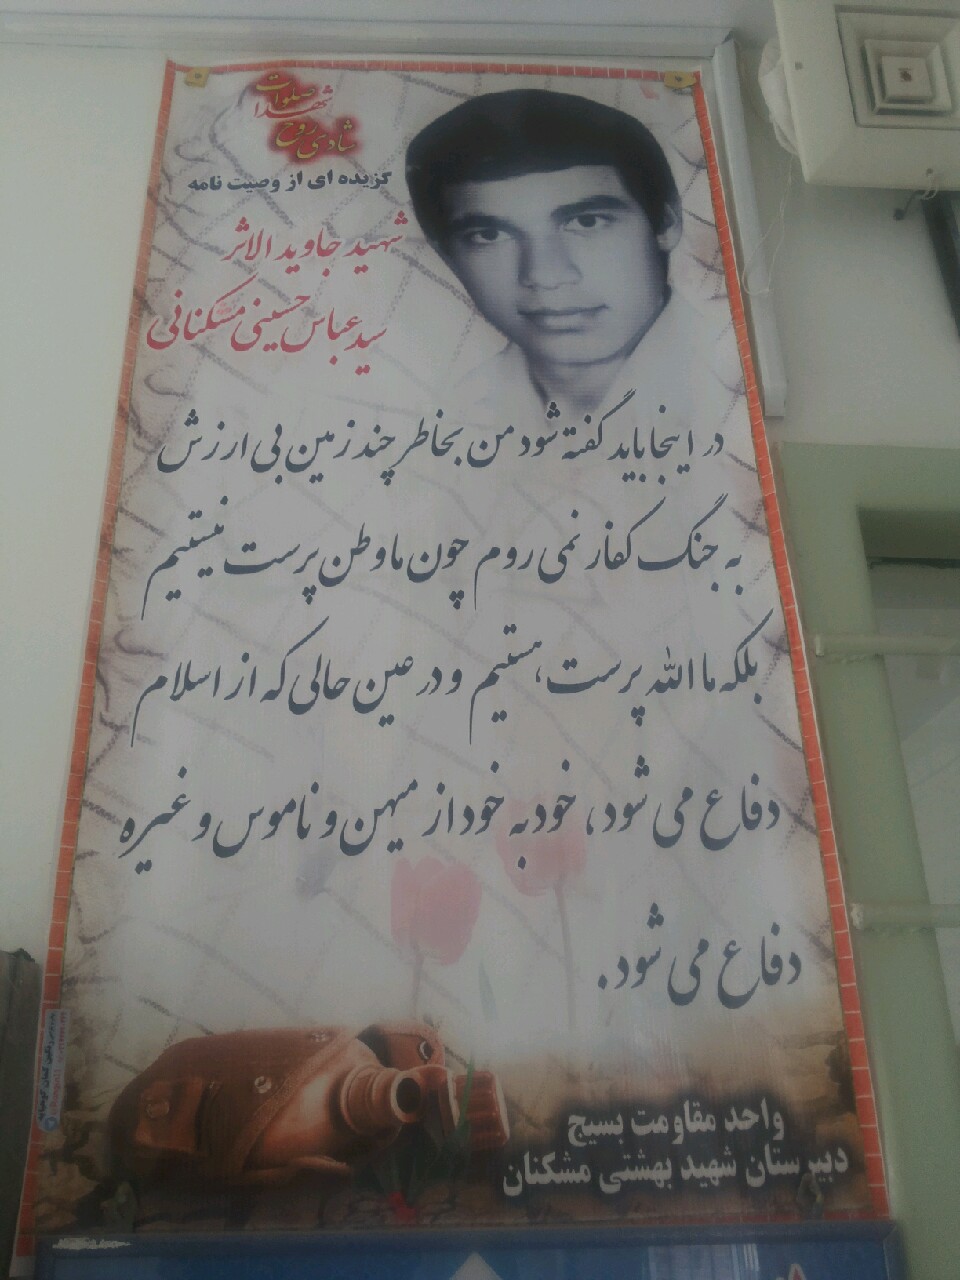 شادی روح
شهدا
صلوات
گزیده ای از وصیت نامه
شهید جاوید الاثر
سید عباس حسینی مشکنانی
در اینجا باید گفته شود من بخاطر چند زمین بی ارزش
به جنگ کفار نمی روم چون ما وطن پرست نیستیم
بلکه ما الله پرست، هستیم و در عین حالی که از اسلام
دفاع می شود، خود به خود از میهن و ناموس و غیره
دفاع می شود.
واحد مقاومت بسیج
دبیرستان شهید بهشتی مشکنان